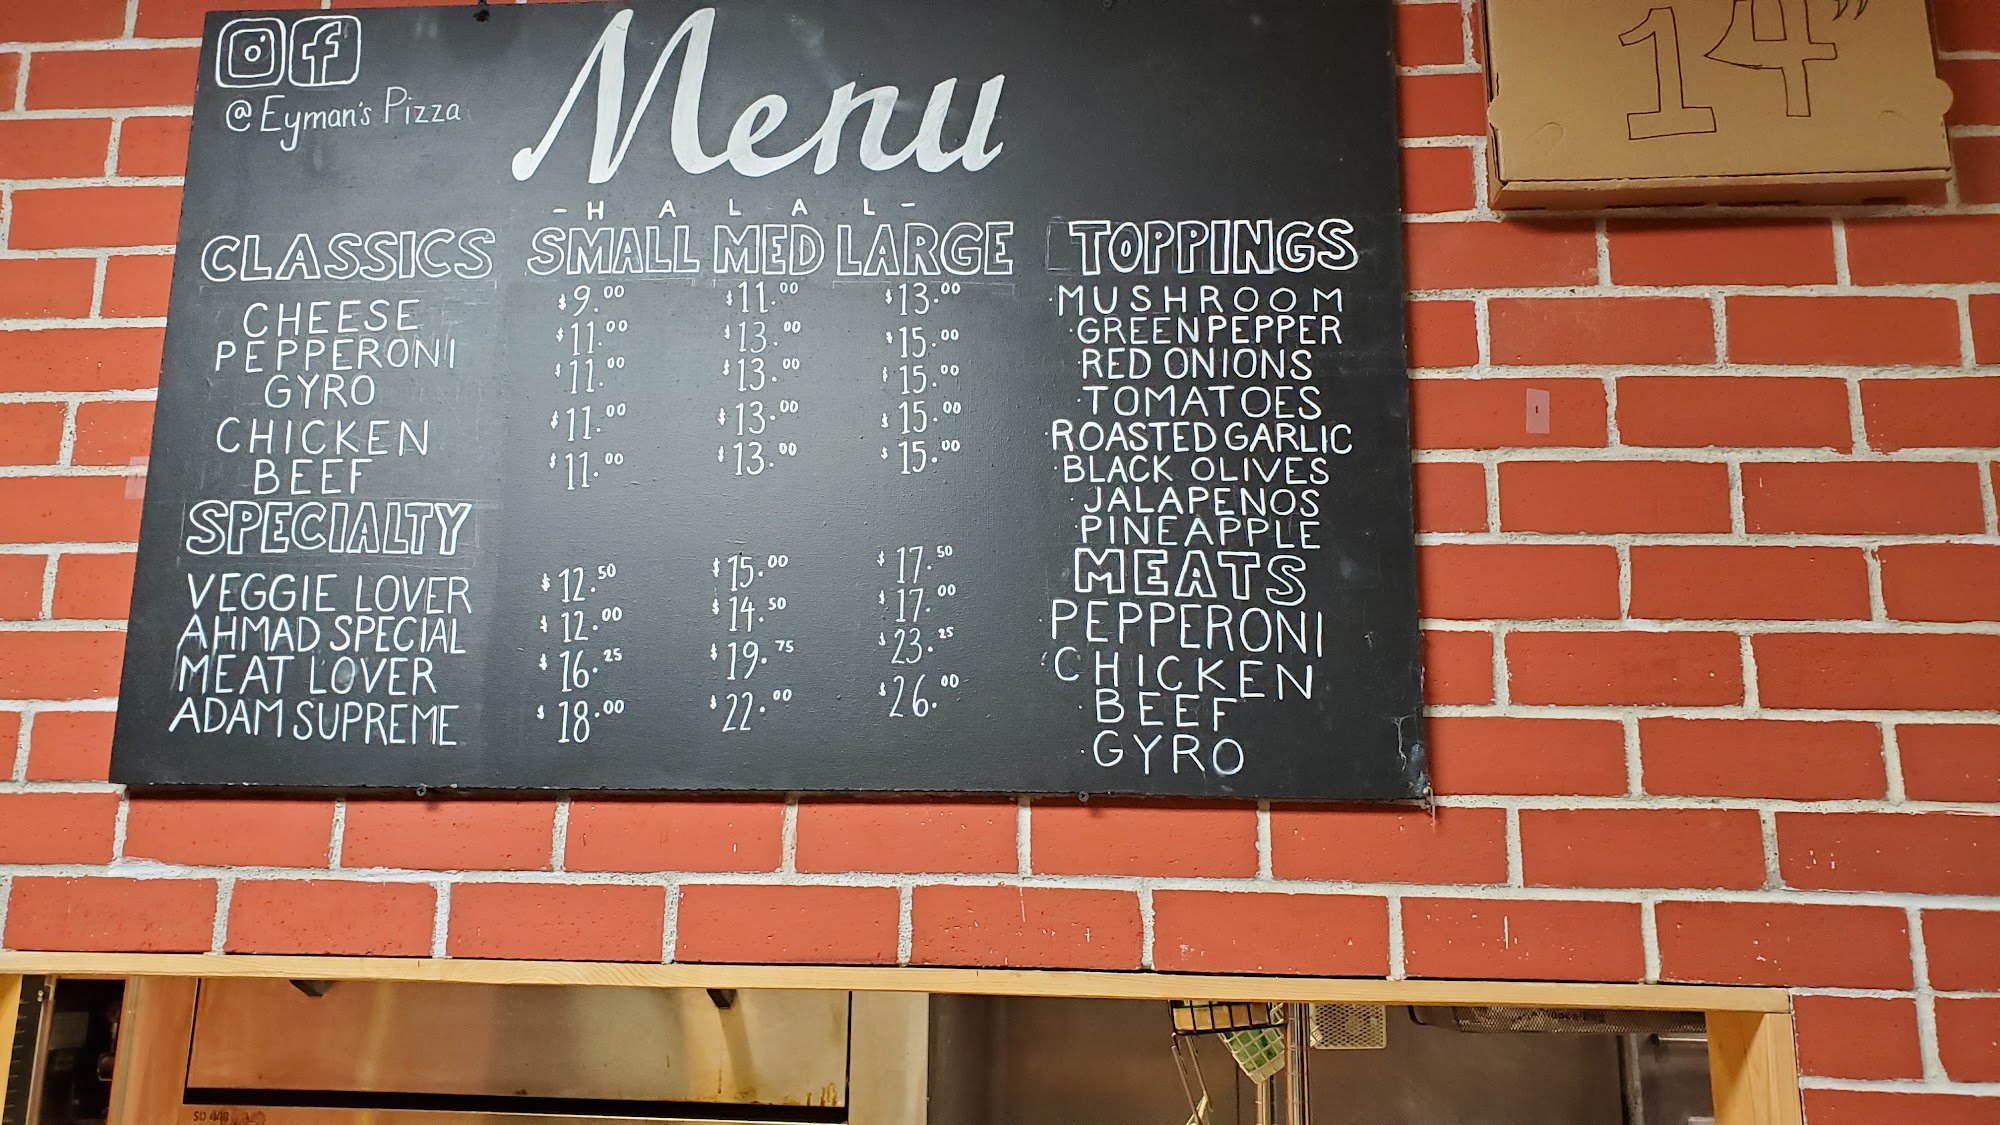 @Eyman's Pizza
Menu
- H A L A L -
CLASSICS SMALL MED LARGE
CHEESE $9.00 $11.00 $13.00
PEPPERONI $11.00 $13.00 $15.00
GYRO $11.00 $13.00 $15.00
CHICKEN $11.00 $13.00 $15.00
BEEF $11.00 $13.00 $15.00
SPECIALTY
VEGGIE LOVER $12.50 $15.00 $17.50
AHMAD SPECIAL $12.00 $14.50 $17.00
MEAT LOVER $16.25 $19.75 $23.25
ADAM SUPREME $18.00 $22.00 $26.00
TOPPINGS
·MUSHROOM
·GREEN PEPPER
·RED ONIONS
·TOMATOES
·ROASTED GARLIC
·BLACK OLIVES
·JALAPENOS
·PINEAPPLE
MEATS
·PEPPERONI
·CHICKEN
·BEEF
·GYRO
14"